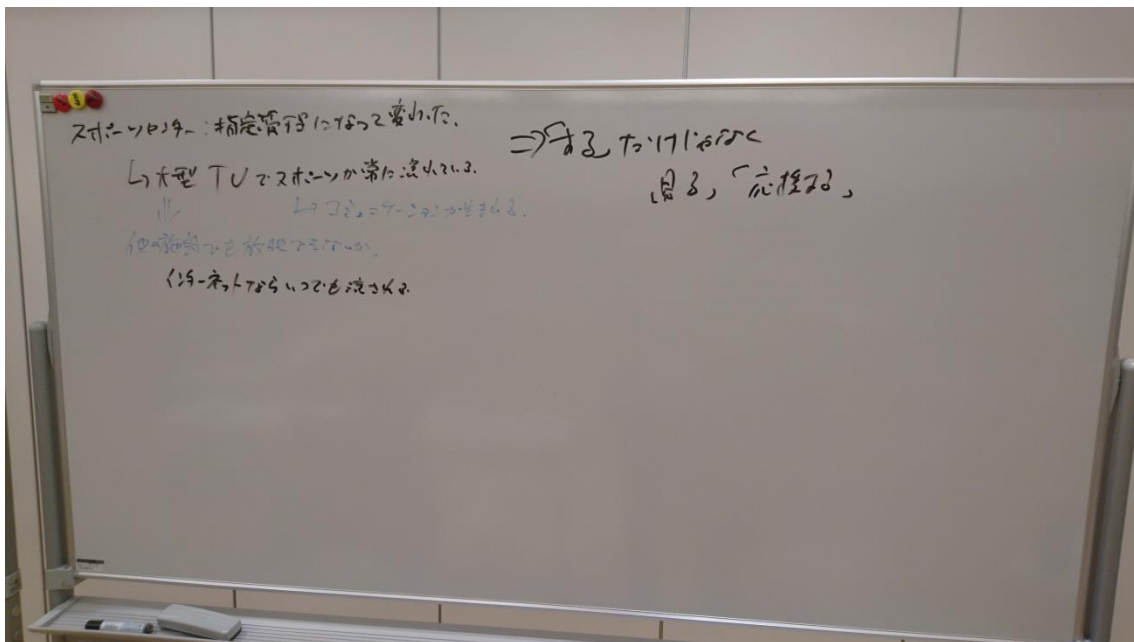 スポーツセンター:指定管理になって変わった。
↳大型TVでスポーツが常に流れている。
↳コミュニケーションが生まれる。
⇓
他の施設でも放映できないか。
インターネットならいつでも流される
⇒「する」だけじゃなく
「見る」「応援する」